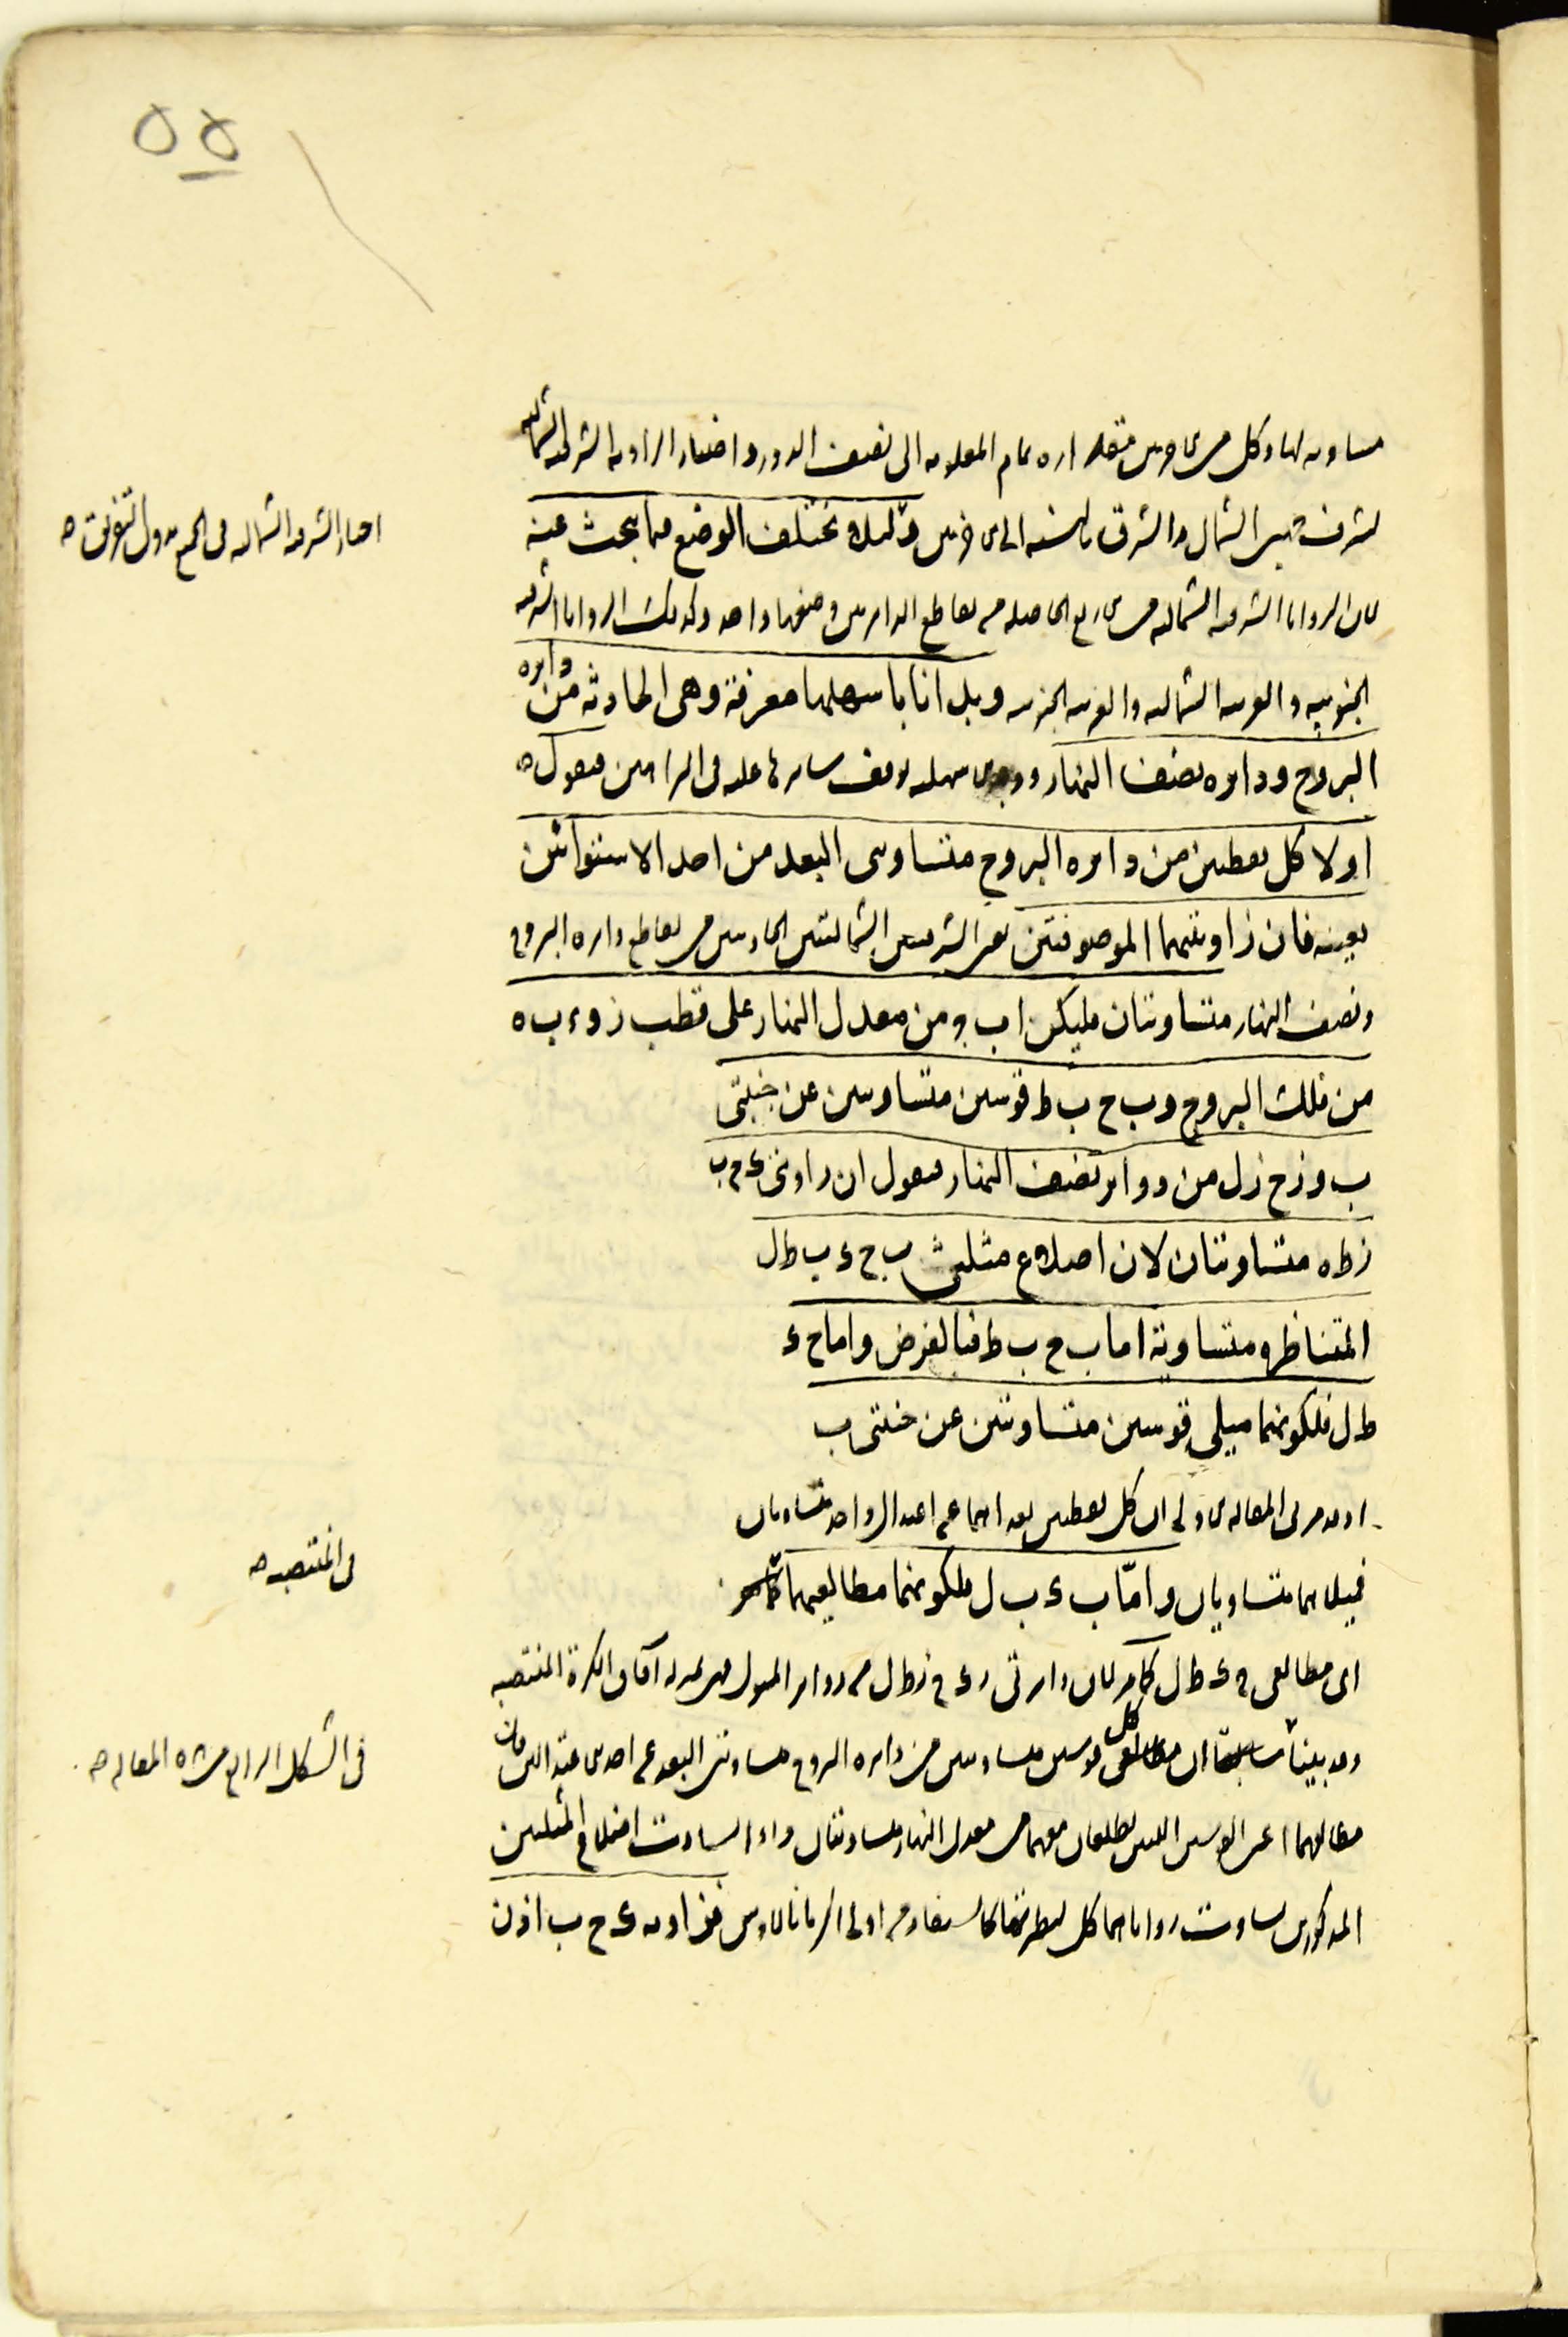 ٥٥
مساويه لها وكل من الاخريين مقدار تمام المعلومه الى نصف الدور واختيار الزاويه الشرقيه الشماليه
لشرف جهتى الشمال والشرق بالنسبه الى الاخريين ولئلا يختلف الوضع فيما يبحث عنه
لان الزوايا الشرقيه الشماليه من الاربع الحاصله من تقاطع الدايرتين وضعها واحد وكذلك الزوايا الشرقيه
الجنوبيه والغربيه الشماليه والغربيه الجنوبيه ونبدا باسهلها معرفة وهى الحادثه من دايره
البروج ودايره نصف النهار سهله توقف سايرها عليه فى البراهين فنقول
اولا كل نقطتين من دايره البروج متساوى البعد من احد الاستوائين
بعينه فان زاويتيهما الموصوفتين اعنى الشرقيتين الشماليتين الحادثتين من تقاطع دايره البروج
ونصف النهار متساويتان فليكن ا ب ج من معدل النهار على قطب ز و ء ب ه
من فلك البروج و ب ح ب ط قوسين متساويين عن جنبتى
ب و ز ح ز ل من دواير نصف النهار فنقول ان زاويتى ء ح ب
ز ط ه متساويتان لان اضلاع مثلثى ب ح ء ب ط ل
المتناظره متساوية اما ب ح ب ط فبالفرض واما ح ء
ط ل فلكونهما ميلى قوسين متساويتين عن جنبتى ب
اذ قد مر فى المقاله الاولى ان كل نقطتين بعداهما عن اعتدال واحد متساويان
فميلاهما متساويان وامّا ب ء ب ل فلكونهما مطالعيهما
اى مطالعى ح ء ط ل كما مر لان دايرتى ز ء ح ز ط ل من دواير الميول فهى بمنزله آفاق الكرة المنتصبه
وقد بينا سابقا ان كل قوسين متساويين من دايره البروج متساويتى البعد عن احدى نقطتى الاعتدال فان
مطالعهما اعنى القوسين اللتين تطلعان معهما من معدل النهار متساويتان واذا تساوت اضلاع المثلثين
المذكورين تساوت زواياهما كل لنظيرتها كما يستفاد من اولى اكر مانالاوس فزاويه ء ح ب اذن
اختيار الشرقيه الشماليه فى الجميع بدون التفريق
فى المنتصبه
فى الشكل الرابع من هذه المقاله